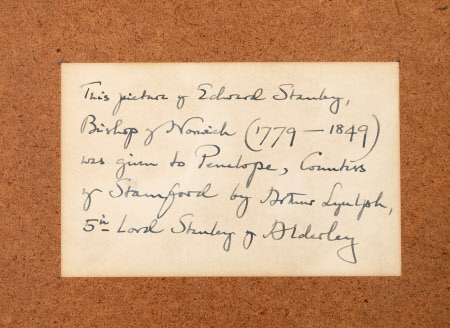 This picture of Edward Stanley,
Bishop of Norwich (1779 – 1849)
was given to Penelope, Countess
of Stamford by Arthur Lyulph,
5th Lord Stanley of Alderley